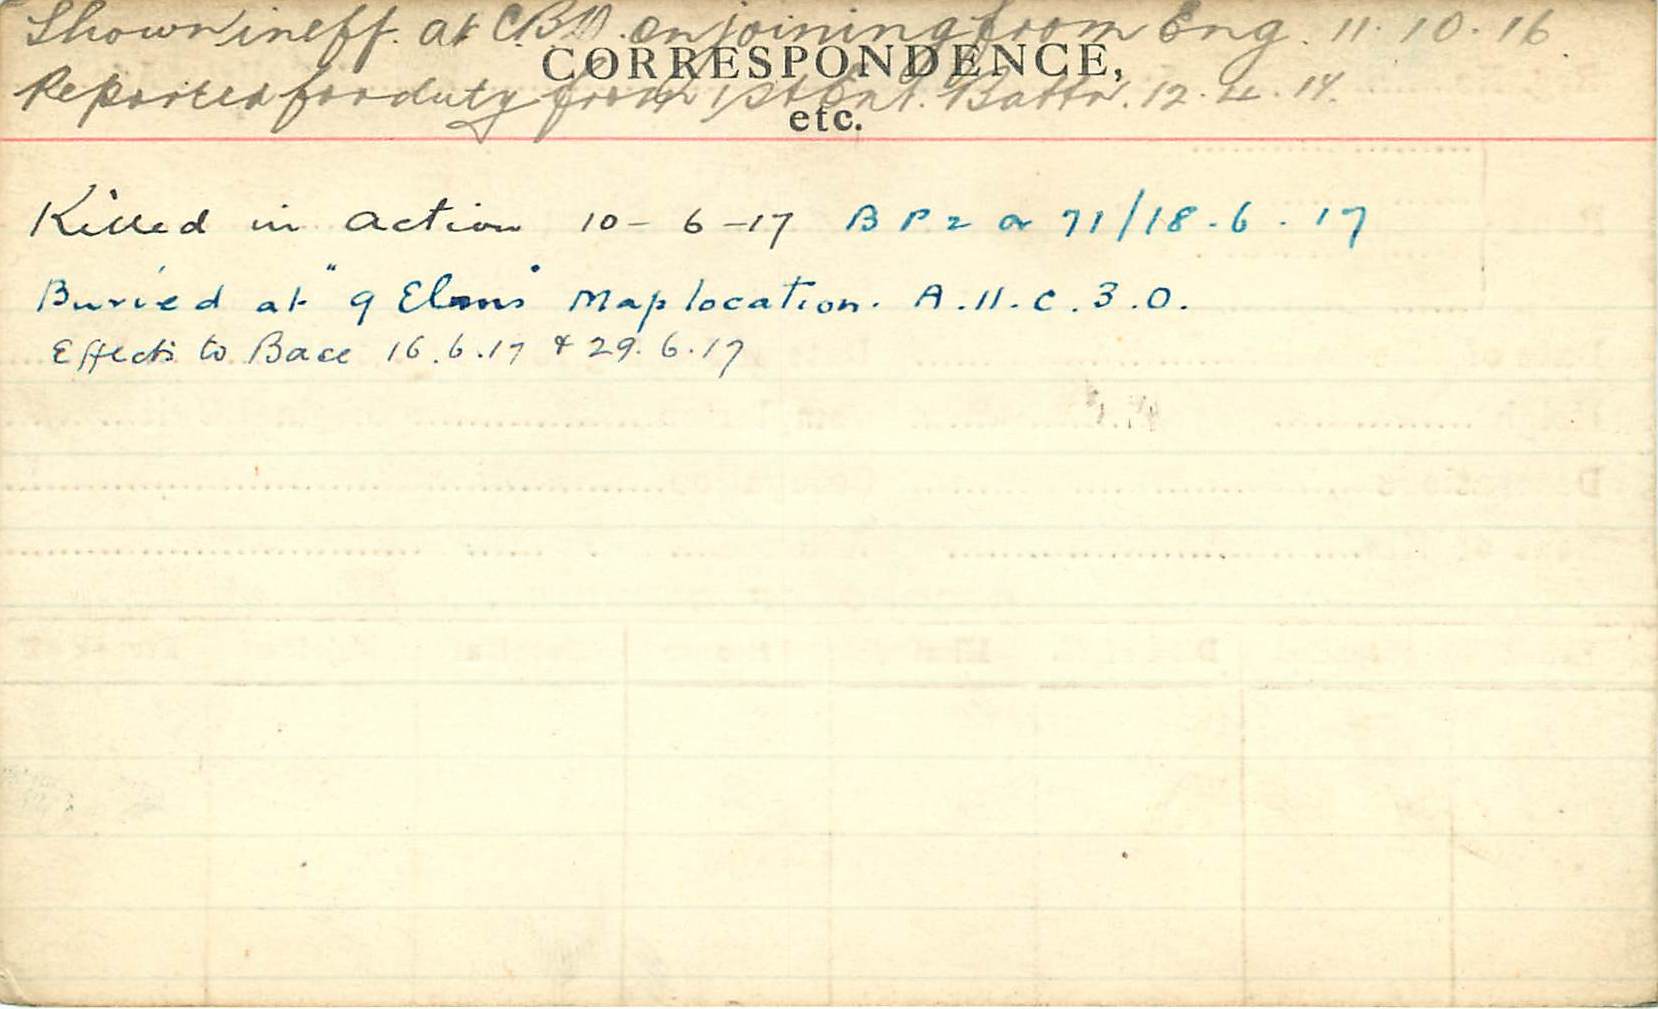 Shown ineff. at CBD. on joining from Eng. 11.10.16
CORRESPONDENCE,
Reported for duty from 1st Ent. Battn. 12.4.17.
etc.
Killed in action 10-6-17 B P 2 or 71/18.6.17
Buried at "9 Elms" Map location. A.11.C.3.0.
Effects to Base 16.6.17 & 29.6.17